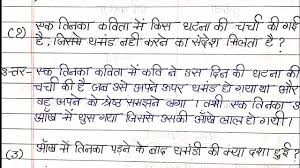 (2) एक तिनका कविता में किस घटना की चर्चा की गई
है, जिससे घमंड नहीं करने का संदेश मिलता है ?
उत्तर- एक तिनका कविता में कवि ने उस दिन की घटना की
चर्चा की है जब उसे अपने ऊपर घमंड हो गया था और
वह अपने को श्रेष्ठ समझने लगा । तभी एक तिनका उ
आँख में घुस गया जिससे उसकी आँखे लाल हो गयी ।
(3) आँख में तिनका पड़ने के बाद घमंडी की क्या दशा हुई